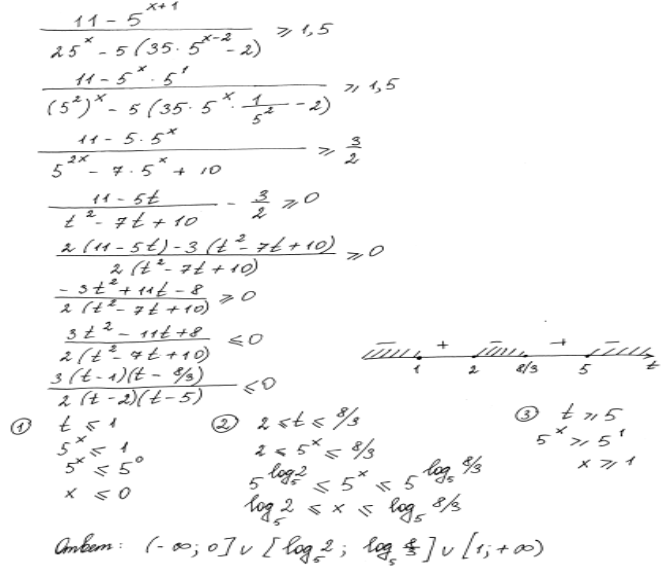 (11 - 5^(x+1)) / (25^x - 5(35·5^(x-2) - 2)) ⩾ 1,5
(11 - 5^x · 5^1) / ((5^2)^x - 5(35·5^x · 1/5^2 - 2)) ⩾ 1,5
(11 - 5·5^x) / (5^(2x) - 7·5^x + 10) ⩾ 3/2
(11 - 5t) / (t^2 - 7t + 10) - 3/2 ⩾ 0
(2(11 - 5t) - 3(t^2 - 7t + 10)) / (2(t^2 - 7t + 10)) ⩾ 0
(-3t^2 + 11t - 8) / (2(t^2 - 7t + 10)) ⩾ 0
(3t^2 - 11t + 8) / (2(t^2 - 7t + 10)) ⩽ 0
(3(t - 1)(t - 8/3)) / (2(t - 2)(t - 5)) ⩽ 0
− + − + −
1 2 8/3 5 t
① t ⩽ 1
5^x ⩽ 1
5^x ⩽ 5^0
x ⩽ 0
② 2 ⩽ t ⩽ 8/3
2 ⩽ 5^x ⩽ 8/3
5^(log_5 2) ⩽ 5^x ⩽ 5^(log_5 8/3)
log_5 2 ⩽ x ⩽ log_5 8/3
③ t ⩾ 5
5^x ⩾ 5^1
x ⩾ 1
Ответ: (-∞; 0] ∪ [log_5 2; log_5 8/3] ∪ [1; +∞)